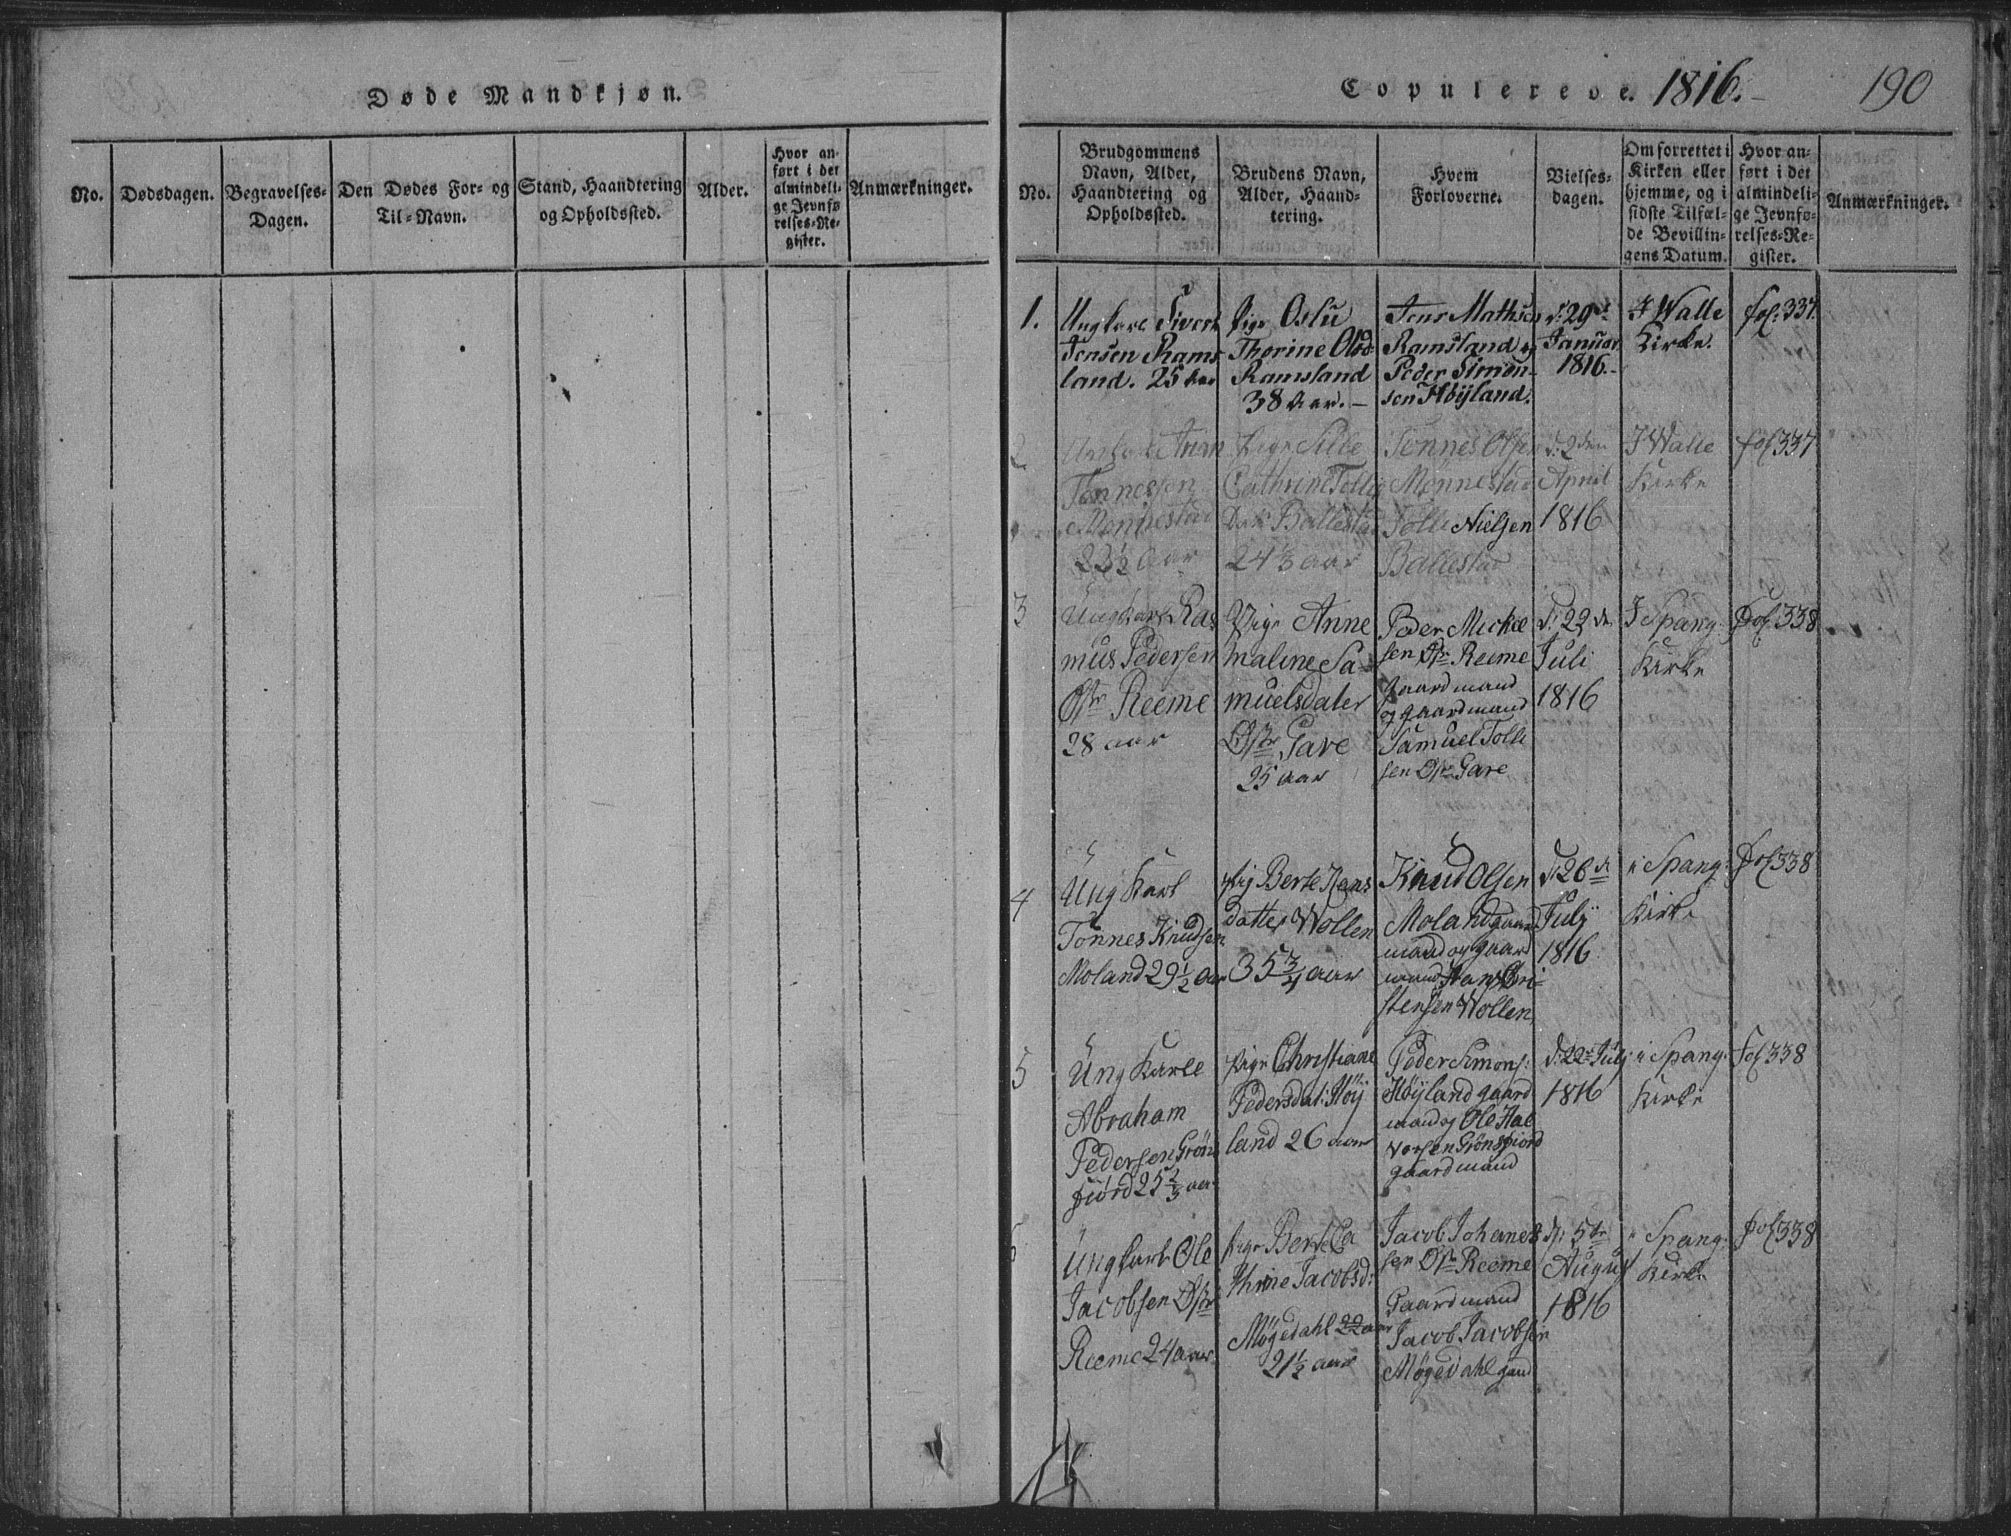 Døde Mandkjøn.
No.
Dødsdagen.
Begravelses-
Dagen.
Den Dødes For- og
Til-Navn.
Stand, Haandtering
og Opholdssted.
Alder.
Hvor an-
ført i det
almindeli-
ge Jevnfø
relses-Re-
gister.
Anmærkninger.
Copulerede. 1816.
190
No.
Brudgommens
Navn, Alder,
Haandtering og
Opholdssted.
Brudens Navn,
Alder, Haand-
tering.
Hvem
Forloverne.
Vielses-
dagen.
Om forrettet i
Kirken eller
hjemme, og i
sidste Tilfæl-
de Bevillin-
gens Datum.
Hvor an-
ført i det
almindeli-
ge Jevnfø-
relses-Re-
gister.
Anmærkninger.
1.
Ungkarl Sivert
Jensen Rams
land. 25 Aar
Pige Oslu
Thorine Olsd
Ramsland
38 Aar.
Jens Mathisen
Ramsland og
Peder Simon-
sen Höyland.
d. 29d
Januar
1816.
I Walle
Kirke.
fol: 337.
2
Ungkarl
Tønnessen
Mønnestad
23½ Aar
Pige Sille
Cathrine Tollis
Dat: Ballestad
24⅓ aar
Tønnes Olsen
Mønnestad
Tolle Nielsen
Ballestad
d: 2den
April
1816
I Walle
Kirke
fol 337
3
Ungkarl Ras
mus Pedersen
Østr Reeme
28 aar
Pige Anne
maline Sa-
muelsdater
Østr Gare
25 aar
Peder Mickel
sen Østr Reeme
gaardmand
og gaardmand
Samuel Tolli
sen Østr Gare
d: 22de
Juli
1816
I Spang:
Kirke
Fol 338
4
Ung Karl
Tønnes Knudsen
Moland 29½ Aar
Pig Berte Hans
datter Wollen
35¾ aar
Knud Olsen
Moland gaard
mand og gaard
mand Hans Cri-
stensen Wollen
d: 26de
Julj
1816
i Spang:
Kirke
Fol 338
5
Ung Karll
Abraham
Pedersen Grøns
fjord 25⅔ aar
Pige Christiane
Pedersdat: Høy
land 26 aar
Peder Simons:
Høyland gaard
mand og Ole Hal
vorsen Grønsfiord
gaardmand
d: 22de Julj
1816
i Spang:
Kirke
Fol 338
6
Ungkarl Ole
Jacobsen Østr
Reeme 24 aar
Pige Berte Ca
thrine Jacobsd:
Møgedahl 22 aar
21½ aar
Jacob Johanes
sen Østr Reeme
Gaardmand
Jacob Jacobsen
Møgedahl gmd
d: 5te
August
1816
i Spang:
Kirke
Fol 338